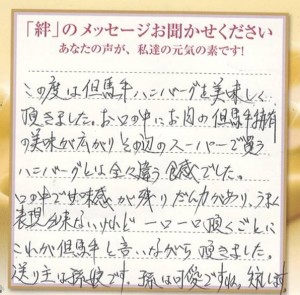 「絆」のメッセージお聞かせください
あなたの声が、私達の元気の素です!
この度は但馬牛ハンバーグを美味しく
頂きました。お口の中にお肉の但馬牛独特
の美味が広がりその辺のスーパーで買う
ハンバーグとは全く違う食感でした。
口の中で甘味感が残りだん力があり、うまく
表現出来ないけれど一口一口頂くごとに
これが但馬牛と言いながら頂きました。
送り主は孫娘です。孫は可愛ですね。